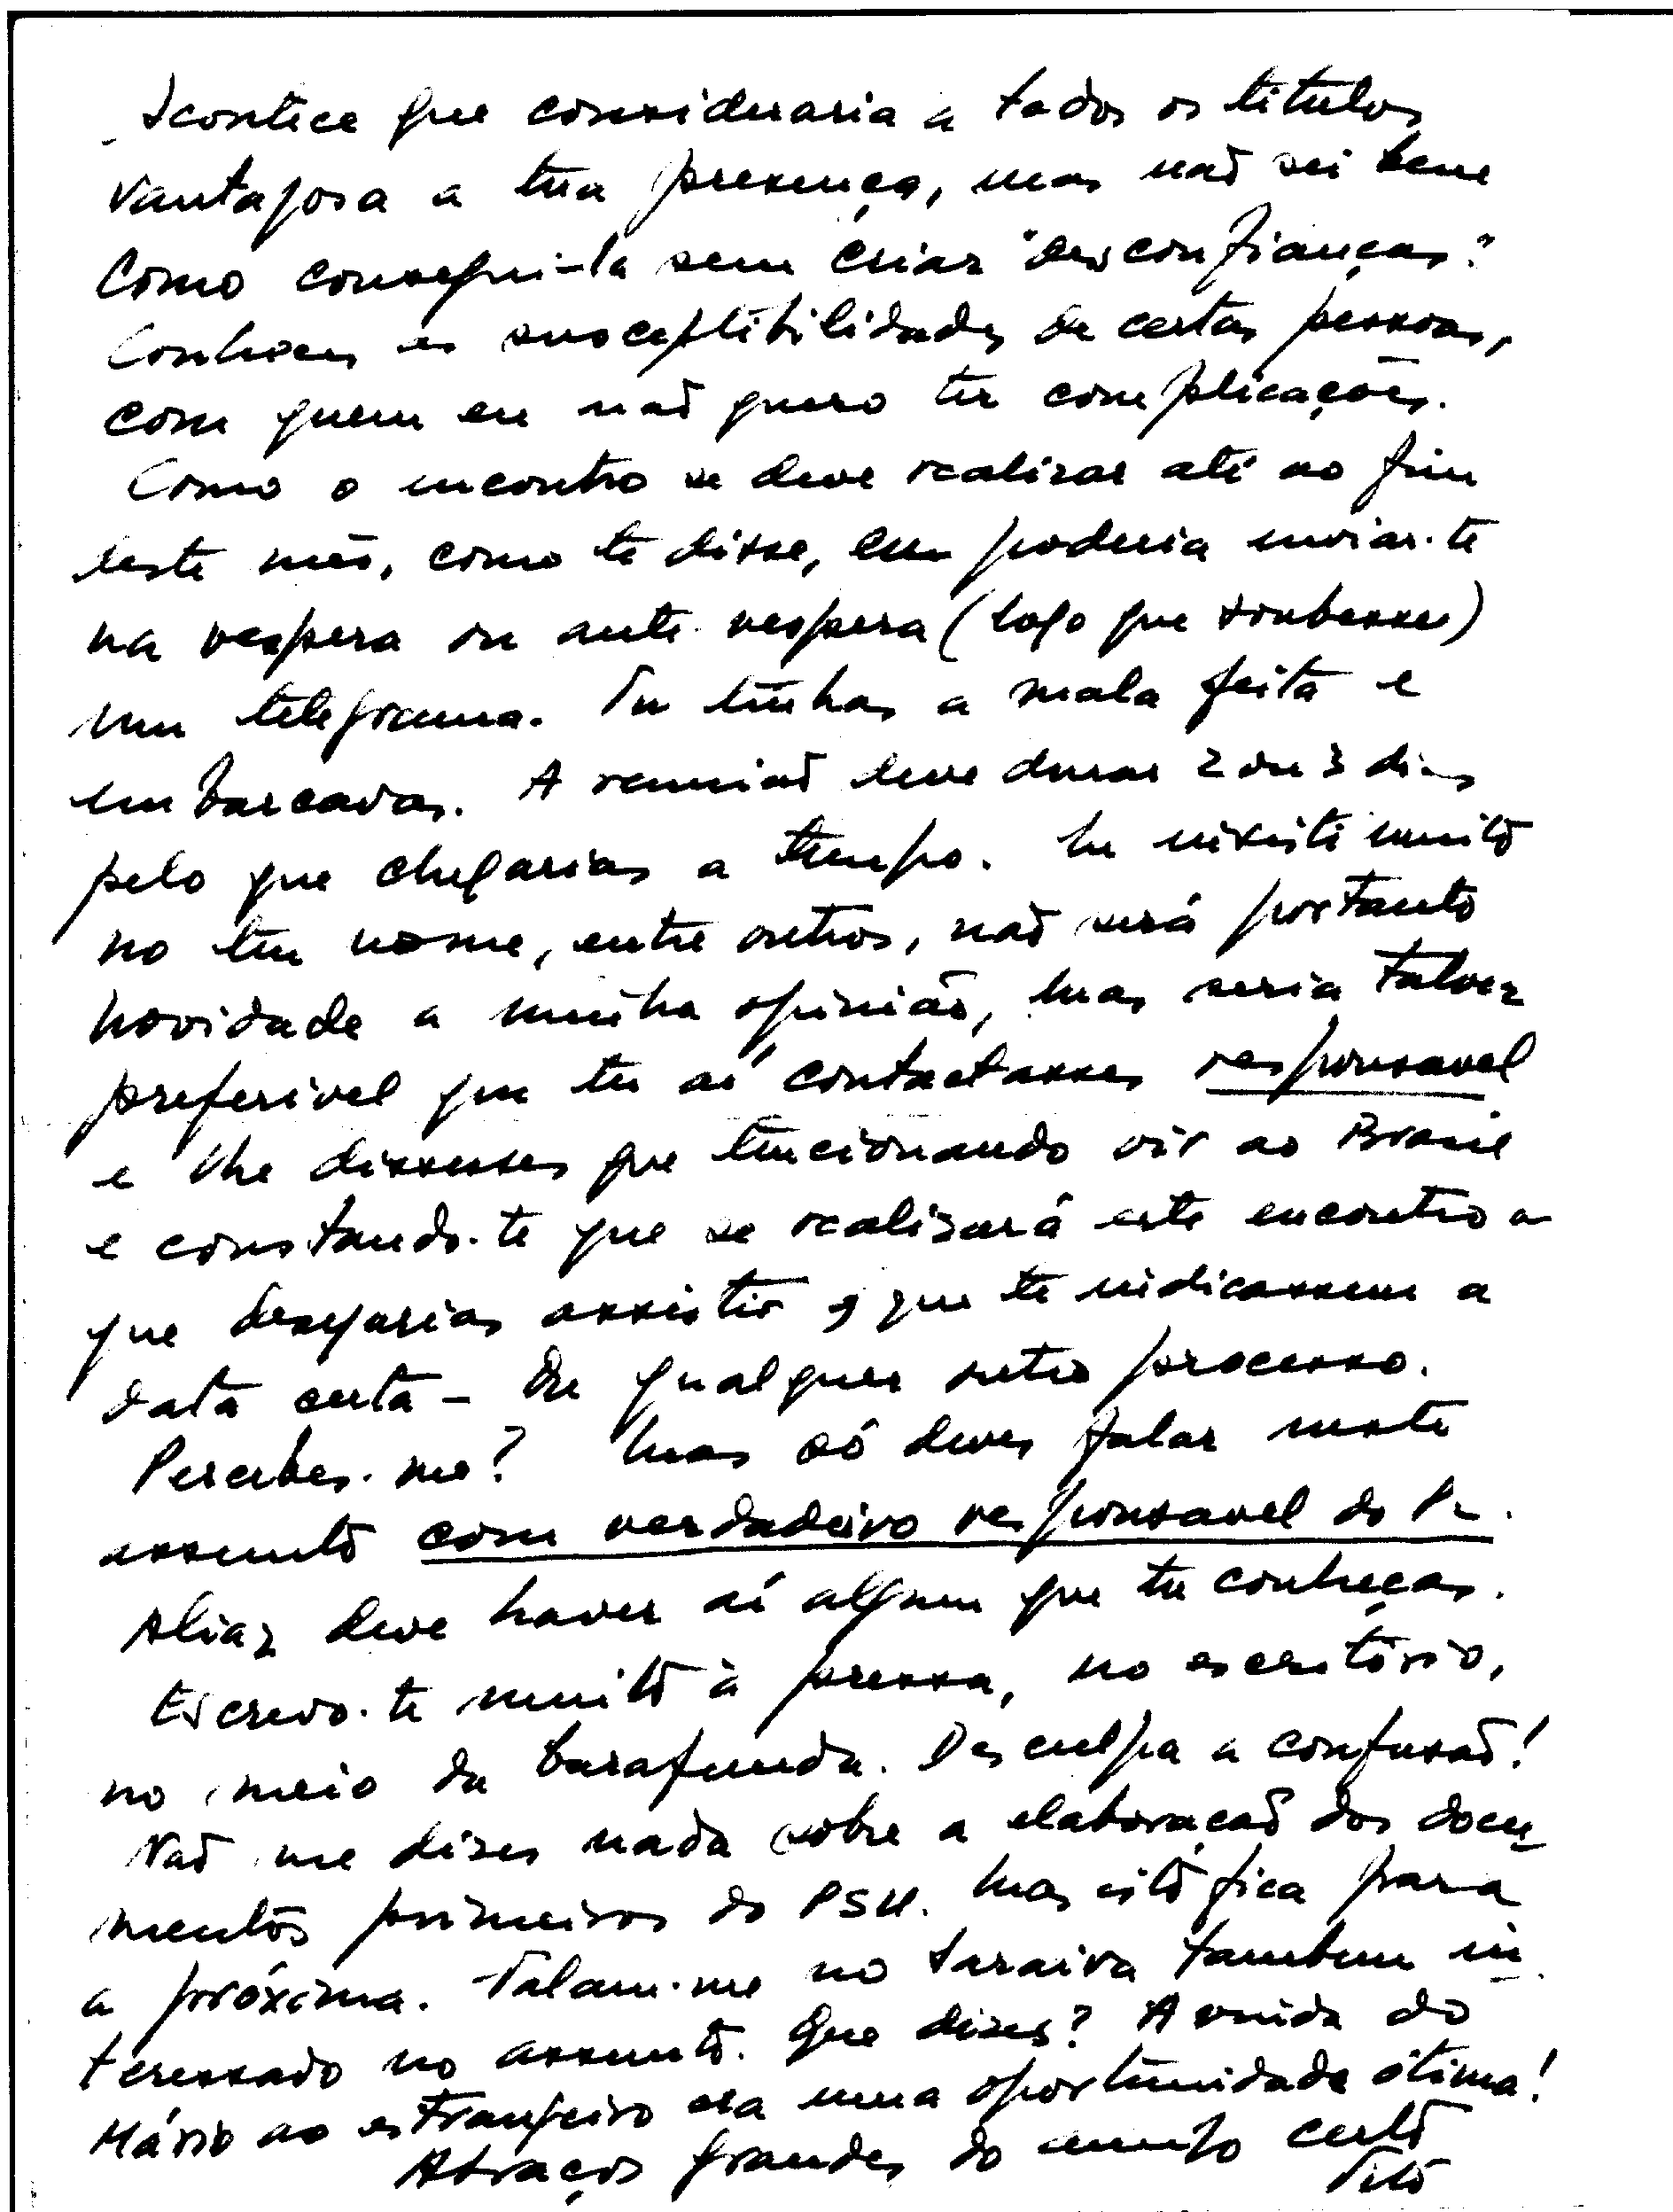 Acontece que consideraria a todos os titulos
vantajosa a tua presença, mas não sei bem
como consegui-la sem criar "desconfianças".
Conheces as susceptibilidades de certas pessoas,
com quem eu não quero ter complicações.
Como o encontro se deve realizar até ao fim
deste mês, como te disse, eu poderia enviar-te
na vespera ou ante-vespera (logo que soubesse)
um telegrama. Tu tinhas a mala feita e
embarcavas. A reunião deve durar 2 ou 3 dias
pelo que chegarias a tempo. Eu insisti muito
no teu nome, entre outros, não será portanto
novidade a minha opinião, mas seria talvez
preferivel que tu aí contactasses responsavel
e lhe dissesses que tencionando vir ao Brasil
e constando-te que se realizará este encontro a
que desejarias assistir, que te indicassem a
data certa - Ou qualquer outro processo.
Percebes-me? Mas só deves falar neste
assunto com verdadeiro responsavel do
Aliaz deve haver aí algum que tu conheças.
Escrevo-te muito à pressa, no escritório,
no meio da barafunda. Desculpa a confusão!
Não me dizes nada sobre a elaboração dos docu
mentos primeiros do PSU. Mas isto fica para
a próxima. Falam-me no Saraiva tambem in
teressado no assunto. Que dizes? A vinda do
Mário ao estrangeiro era uma oportunidade ótima!
Abraços grandes do amigo certo